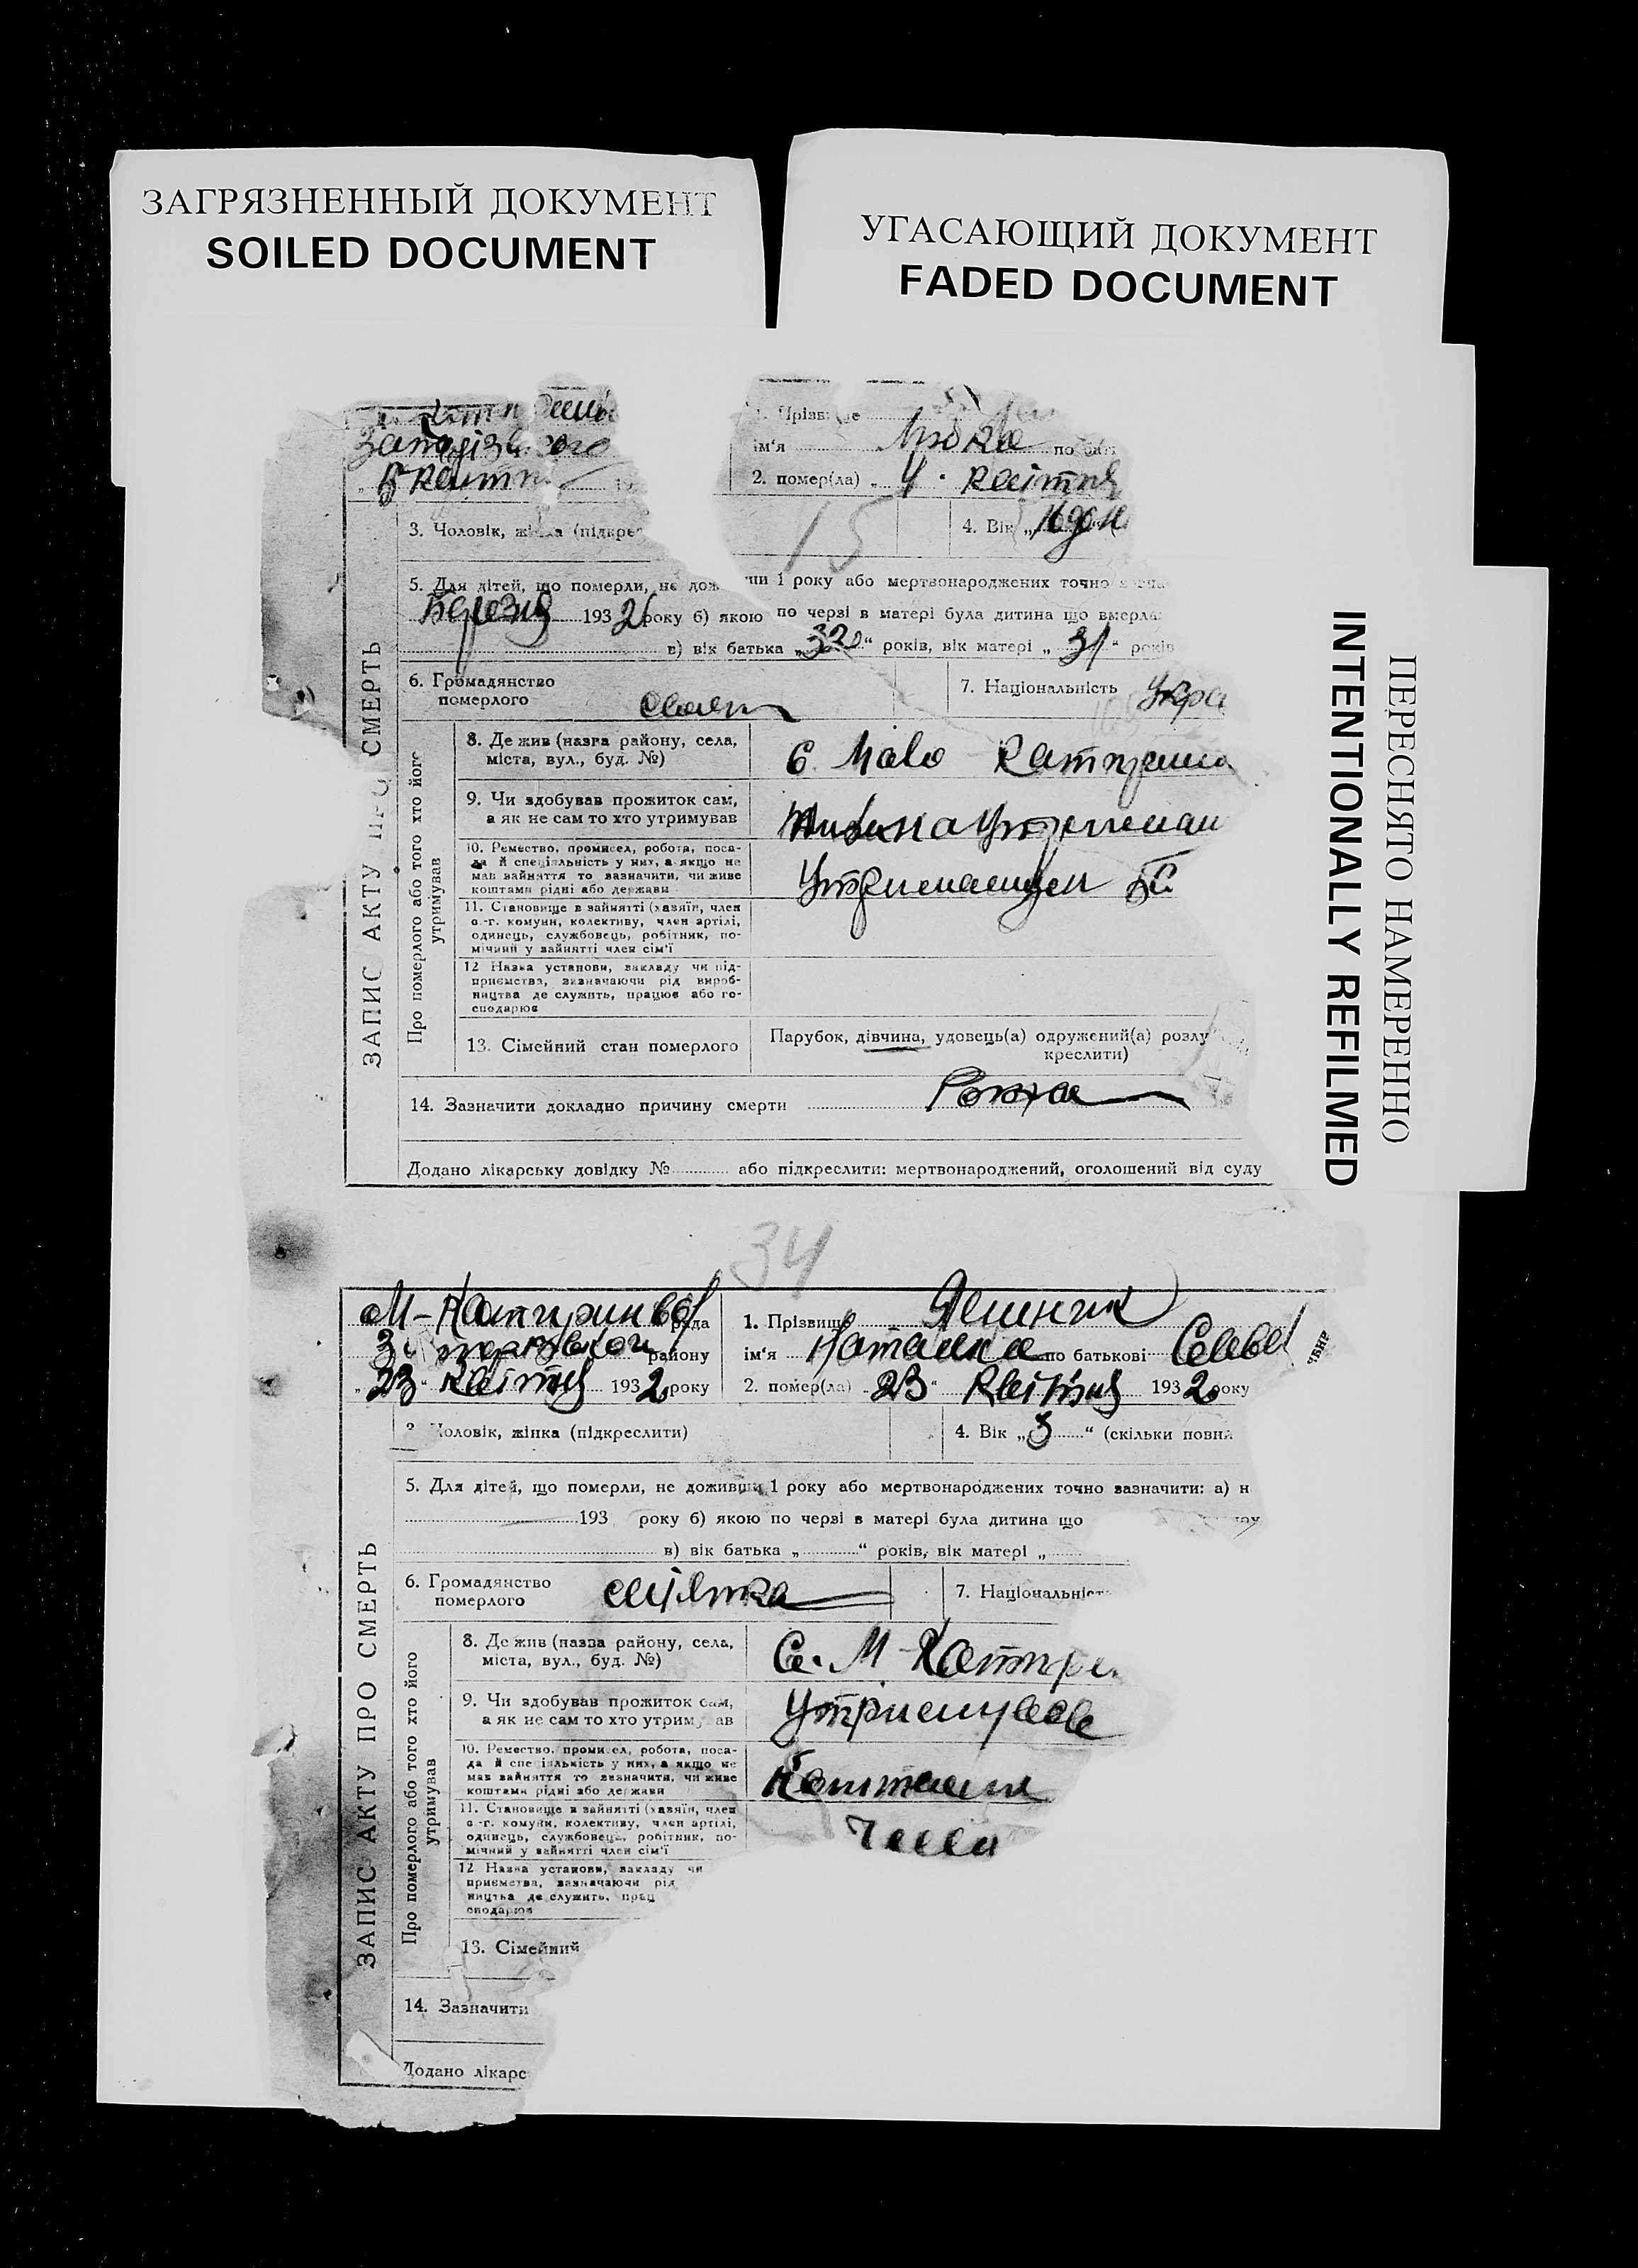 ЗАГРЯЗНЕННЫЙ ДОКУМЕНТ
SOILED DOCUMENT
УГАСАЮЩИЙ ДОКУМЕНТ
FADED DOCUMENT
ПЕРЕСНЯТО НАМЕРЕННО
INTENTIONALLY REFILMED
ЗАПИС АКТУ ПРО СМЕРТЬ
Прізв
ім'я по
2. помер(ла) „ 4 " квітня
15
3. Чоловік, (підкре
4. Вік „
5. Для дітей, що померли, не дож ши 1 року або мертвонароджених точно
Березня 1932 року б) якою по черзі в матері була дитина що вмерла
в) вік батька „32“ років, вік матері „31“ років
6. Громадянство
померлого
7. Національність Укра
Про померлого або того хто його
утримував
8. Де жив (назва району, села,
міста, вул., буд. №)
С. Мало Катирин
9. Чи здобував прожиток сам,
а як не сам то хто утримував
10. Ремество, промисел, робота, поса-
да й спеціяльність у них, а якщо не
мав зайняття то зазначити, чи живе
коштами рідні або держави
11. Становище в зайнятті (хазяїн, член
с.-г. комуни, колективу, член артілі,
одинець, службовець, робітник, по-
мічний у зайнятті член сім'ї
12 Назва установи, закладу чи під-
приємства, визначаючи рід вироб-
ництва де служить, працює або го-
сподарює
13. Сімейний стан померлого
Парубок, дівчина, удовець(а) одружений(а) розлу
креслити)
14. Зазначити докладно причину смерти Рожа
Додано лікарську довідку № або підкреслити: мертвонароджений, оголошений від суду
34
ЗАПИС АКТУ ПРО СМЕРТЬ
М-Катиринов рада
району
„23“ квітня 1932 року
1. Прізвищ
ім'я Наталка по батькові
2. помер(ла) „23“ квітня 1932 року
Чоловік, жінка (підкреслити)
4. Вік „3“ (скільки повн
5. Для дітей, що померли, не доживши 1 року або мертвонароджених точно зазначити: а) н
193 року б) якою по черзі в матері була дитина що
в) вік батька „ “ років, вік матері „
6. Громадянство
померлого
7. Національніст
Про померлого або того хто його
утримував
8. Де жив (назва району, села,
міста, вул., буд. №)
С. М-Катири
9. Чи здобував прожиток сам,
а як не сам то хто утримував
Утримував
10. Ремество, промисел, робота, поса-
да й спеціяльність у них, а якщо не
мав зайняття то зазначити, чи живе
коштами рідні або держави
Коштами
11. Становище в зайнятті (хазяїн, член
с.-г. комуни, колективу, член артілі,
одинець, службовець, робітник, по-
мічний у зайнятті член сім'ї
12 Назва установи, закладу чи
приємства, визначаючи рід
ництва де служить, прац
сподарює
13. Сімейний
14. Зазначити
Додано лікарс